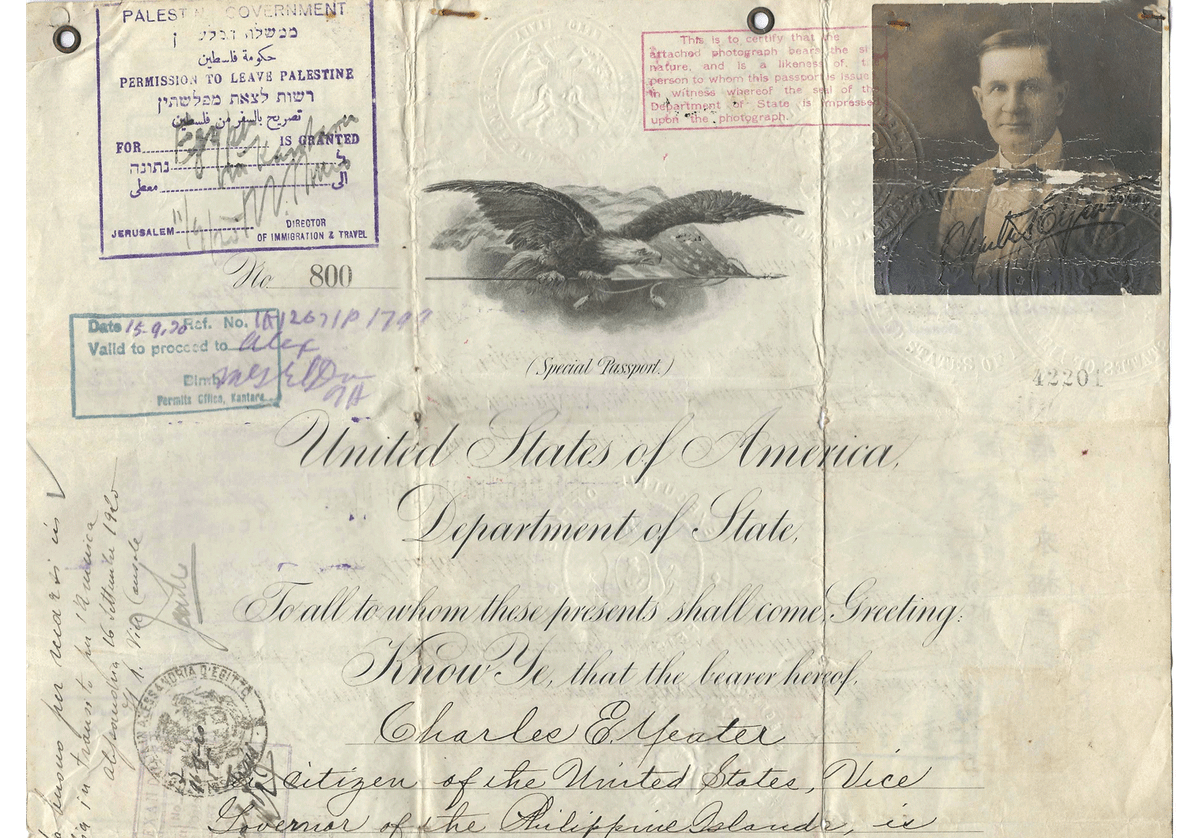 PALESTINE GOVERNMENT
ممשלת
حكومة فلسطين
PERMISSION TO LEAVE PALESTINE
רשות לצאת מפלשתין
تصريح بالسفر من فلسطين
FOR Egypt IS GRANTED
נתונה ל
معطى الى
JERUSALEM
DIRECTOR
OF IMMIGRATION & TRAVEL
This is to certify that the
attached photograph bears the
nature, and is a likeness of
person to whom this passport is issue
in witness whereof the seal of the
Department of State is impressed
upon the photograph.
No. 800
(Special Passport.)
42201
Date 15.9.20 Ref. No.
Valid to proceed to Alex
Permits Office, Kantara
United States of America,
Department of State,
To all to whom these presents shall come, Greeting:
Know Ye, that the bearer hereof,
Charles E. Yeater
a citizen of the United States, Vice
Governor of the Philippine Islands, is
in transito per
Alessandria 16 Settembre 1920
Vice Console
ALESSANDRIA D'EGITTO